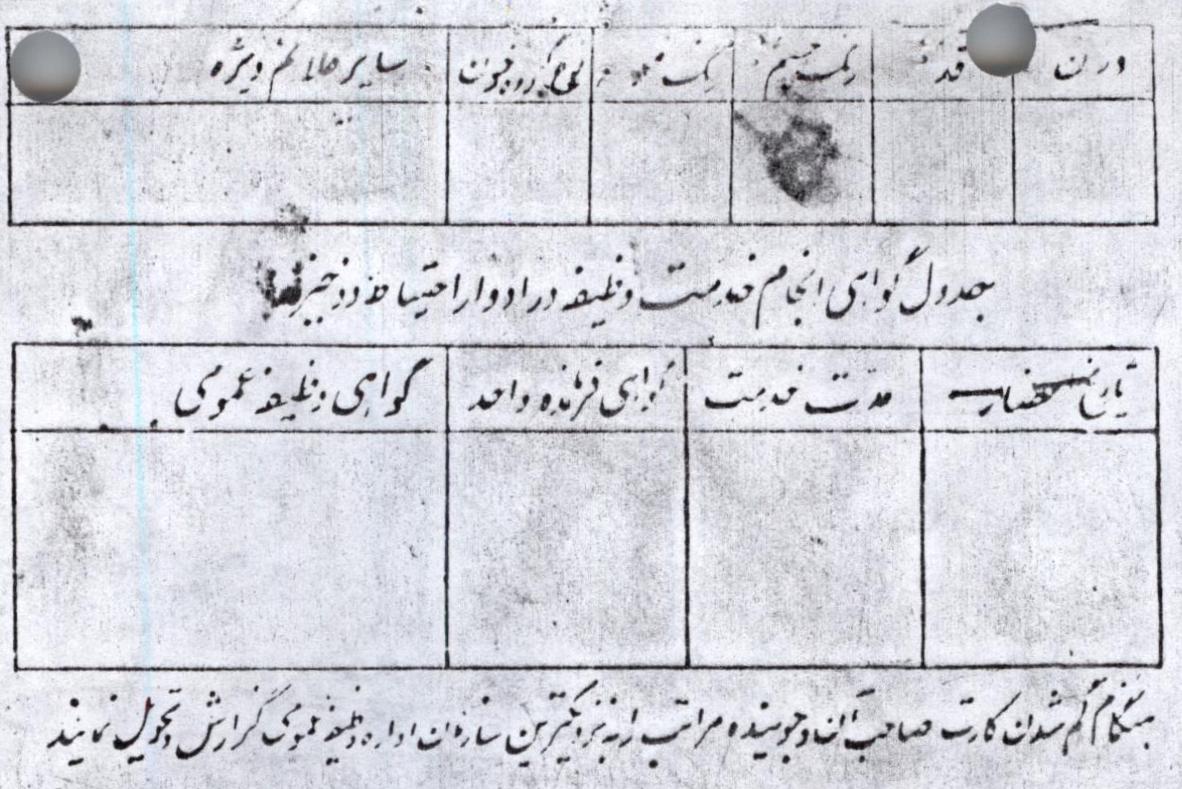 وزن قد رنگ چشم رنگ مو گروه خون سایر علائم ویژه
جدول گواهی انجام خدمت وظیفه در ادوار احتیاط و ذخیره
تاریخ مدت خدمت گواهی فرمانده واحد گواهی وظیفه عمومی
هنگام گم شدن کارت صاحب آن و جوینده مراتب را به نزدیکترین سازمان اداره وظیفه عمومی گزارش و تحویل نمایند